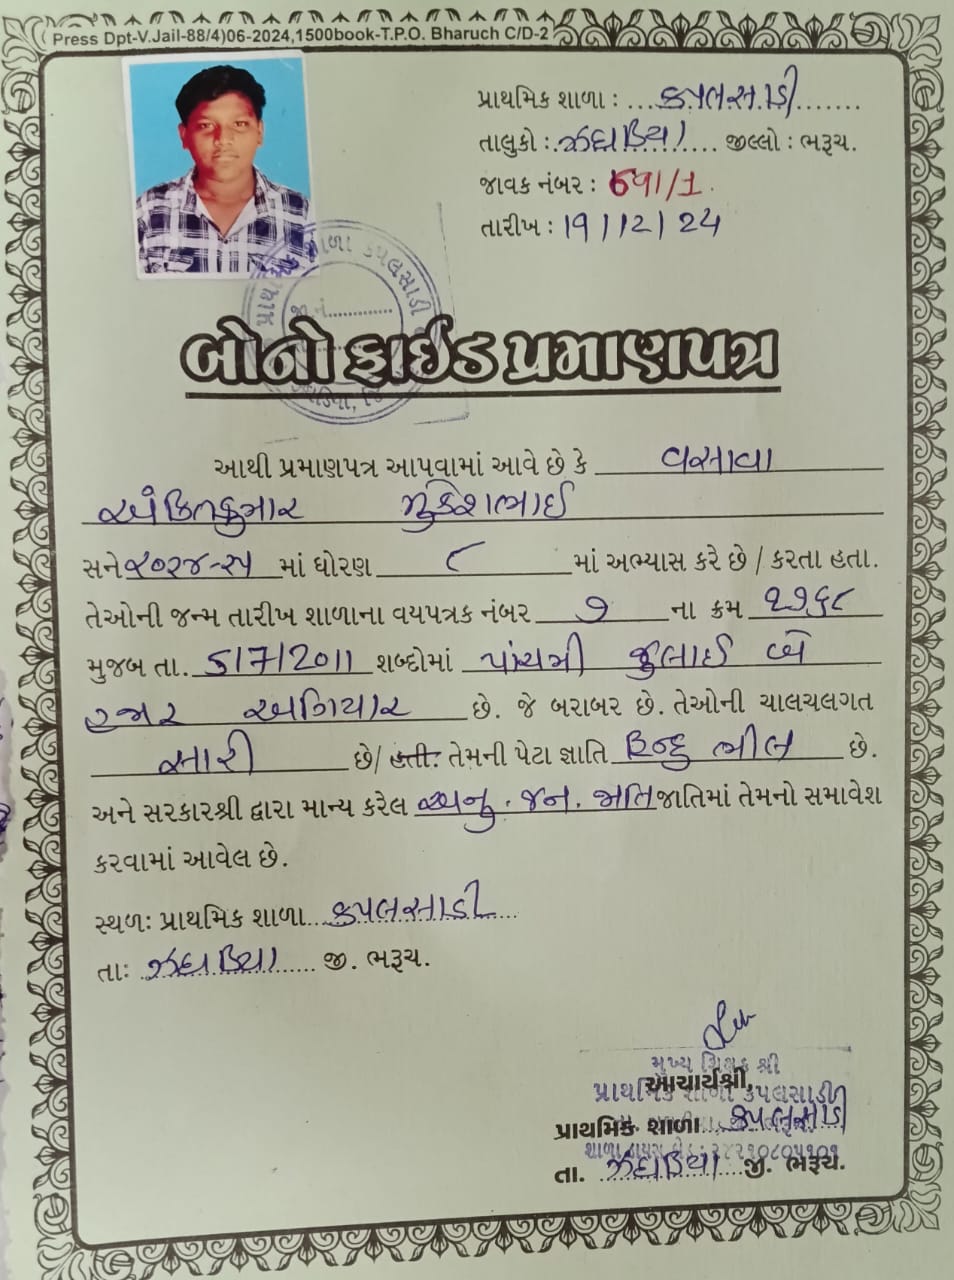 Press Dpt-V.Jail-88/4)06-2024,1500book-T.P.O. Bharuch C/D-2
પ્રાથમિક શાળા : કપલસાડી
તાલુકો : ઝઘડિયા જીલ્લો : ભરૂચ.
જાવક નંબર : 691/1.
તારીખ : 19/12/24
પ્રાથમિક શાળા કપલસાડી
જા.નં.
બોનોફાઈડ પ્રમાણપત્ર
આથી પ્રમાણપત્ર આપવામાં આવે છે કે વસાવા
અંકિતકુમાર મુકેશભાઈ
સને ૨૦૨૪-૨૫ માં ધોરણ ૮ માં અભ્યાસ કરે છે / કરતા હતા.
તેઓની જન્મ તારીખ શાળાના વયપત્રક નંબર ૭ ના ક્રમ ૨૭૬૮
મુજબ તા. 5/7/2011 શબ્દોમાં પાંચમી જુલાઈ બે
હજાર અગિયાર છે. જે બરાબર છે. તેઓની ચાલચલગત
સારી છે/ હતી. તેમની પેટા જ્ઞાતિ હિન્દુ ભીલ છે.
અને સરકારશ્રી દ્વારા માન્ય કરેલ અનુ. જન. જાતિ જાતિમાં તેમનો સમાવેશ
કરવામાં આવેલ છે.
સ્થળઃ પ્રાથમિક શાળા કપલસાડી
તાઃ ઝઘડિયા જી. ભરૂચ.
મુખ્ય શિક્ષક શ્રી
આચાર્યશ્રી,
પ્રાથમિક શાળા કપલસાડી
પ્રાથમિક શાળા કપલસાડી
તા. ઝઘડિયા જી. ભરૂચ.